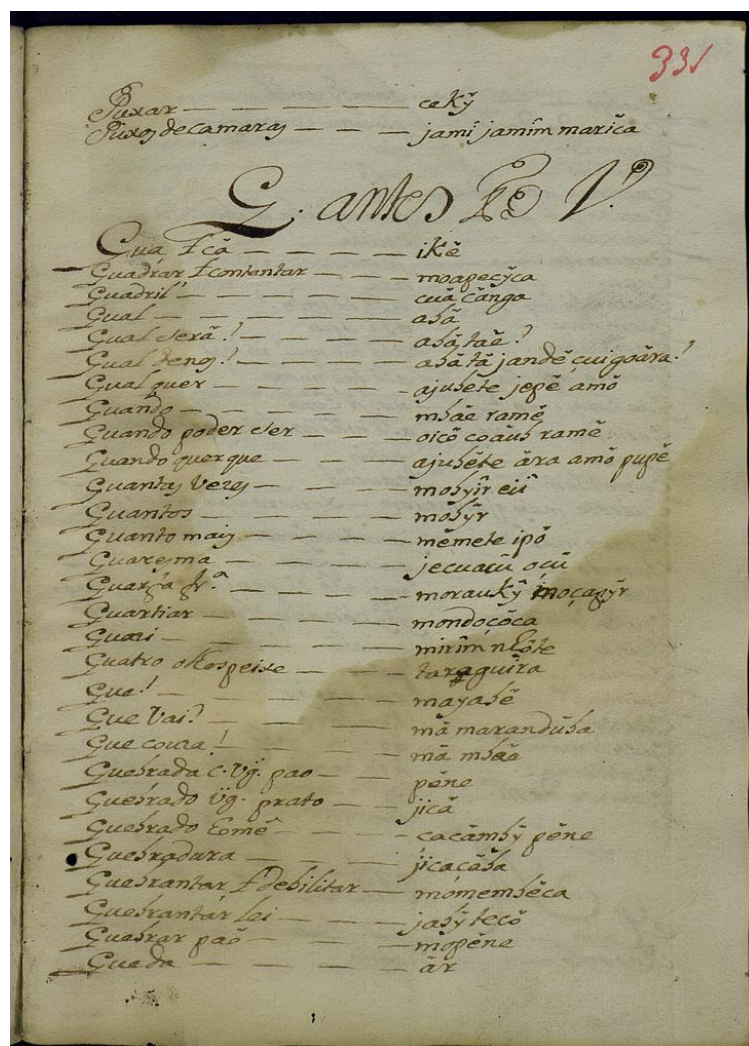 331
Puxar — — — — — ceký
Puxos de camaras — — — jamî jamîm mariça
Q. antes de V.
Qua, l cá — — — — ikê
Quadrar l contentar — — — moapecỹca
Quadril — — — — — cuá cãnga
Qual — — — — — abá
Qual será! — — — — abá, taé?
Qual denos! — — — — abá tá jandé çui goára!
Qual quer — — — — ajubéte jepé amõ
Quando — — — — — mbáe ramé
Quando poder ser — — — oicõ coáub ramé
Quando quer que — — — ajubéte ára amõ pupé
Quantas vezes — — — — mobyîr eiî
Quantos — — — — — mobỹr
Quanto mais — — — — mémete ipõ
Quaresma — — — — jecuacú oçú
Quarta fr.ª — — — — morauký moçapýr
Quartiar — — — — mondoçõca
Quazi — — — — — mirîm nhõte
Quatro olhos peixe — — — taraguira
Que! — — — — — mayabé
Que vai? — — — — mã marandúba
Que couza! — — — — mã mbáe
Quebrada c. vg. pao — — péne
Quebrado vg. prato — — jicá
Quebrado homé — — — cacámbý péne
Quebradura — — — — jicacába
Quebrantar l debilitar — — mómembéca
Quebrantar lei — — — jabý tecõ
Quebrar paõ — — — — mopéne
Queda — — — — — ár